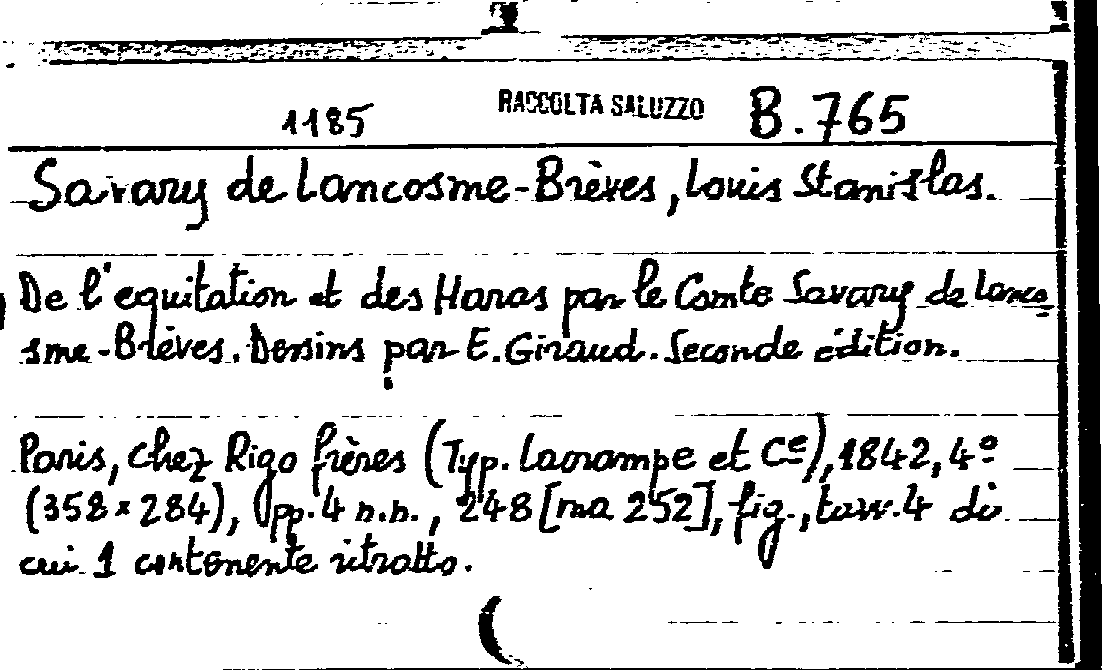 1185 RACCOLTA SALUZZO B.765
Savary de Lancosme-Brèves, Louis Stanislas.
De l'equitation et des Haras par le Comte Savary de Lanco
sme-Brèves. Dessins par E. Giraud. Seconde édition.
Paris, chez Rigo frères (Typ. Lacrampe et Cᵉ), 1842, 4º
(358 × 284), pp. 4 n.n., 248 [ma 252], fig., tavv. 4 di
cui 1 contenente ritratto.